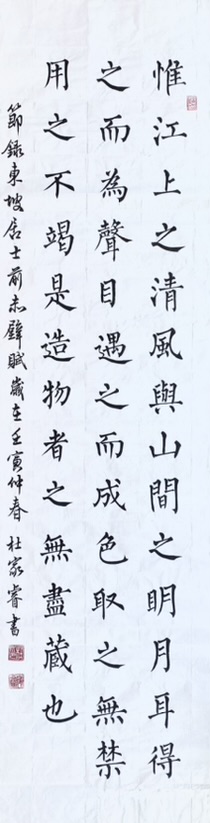 惟江上之清風與山間之明月耳得
之而為聲目遇之而成色取之無禁
用之不竭是造物者之無盡藏也
節錄東坡居士前赤壁賦歲在壬寅仲春 杜家睿書